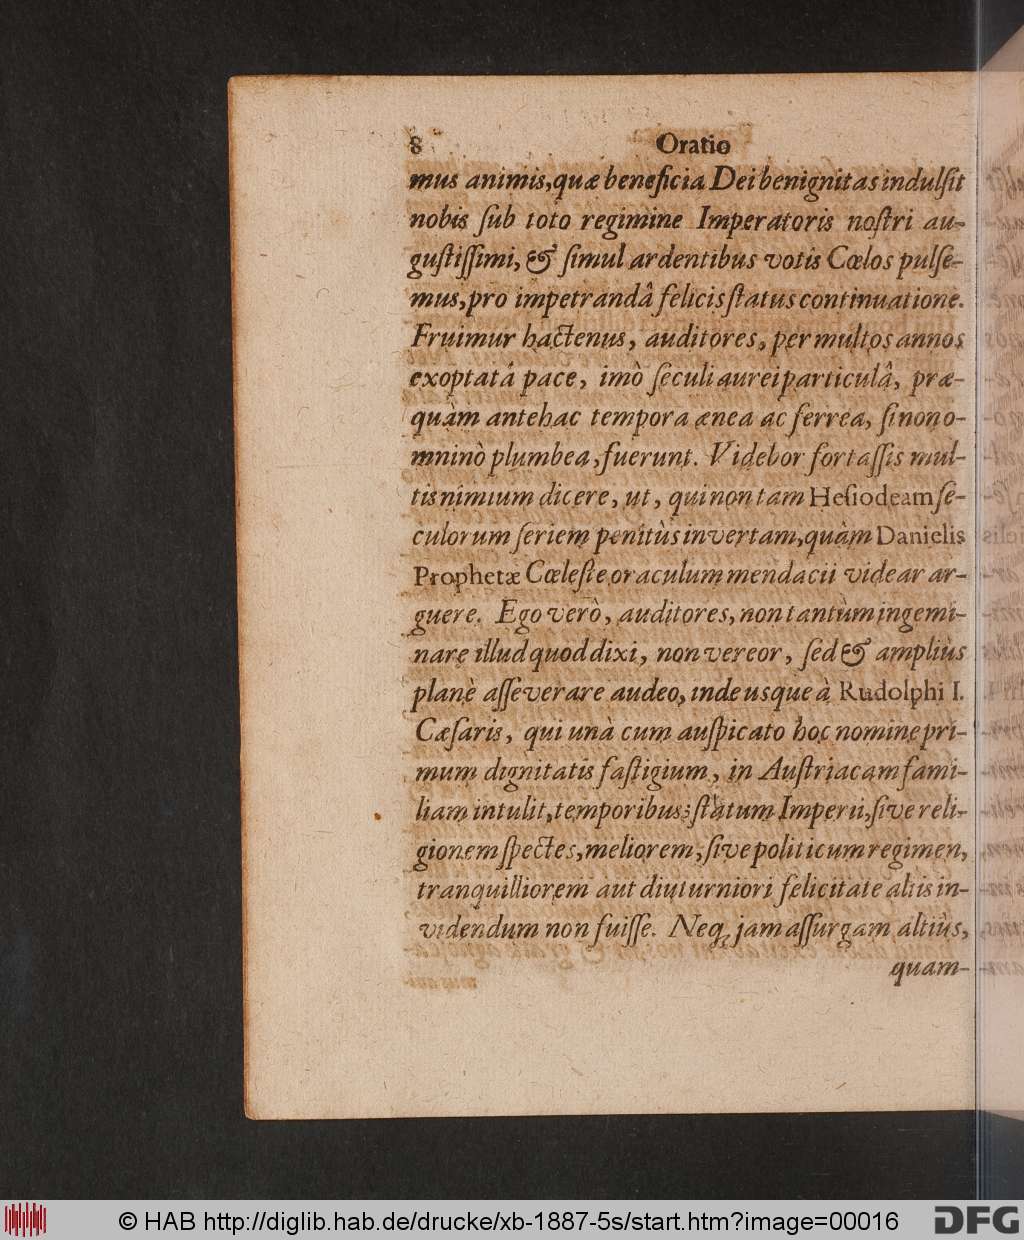 8 Oratio
mus animis, quæ beneficia Dei benignitas indulſit
nobis ſub toto regimine Imperatoris noſtri au-
guſtiſſimi, & ſimul ardentibus votis Cœlos pulſe-
mus, pro impetrandâ felicis ſtatus continuatione.
Fruimur hactenus, auditores, per multos annos
exoptatâ pace, imò ſeculi aurei particulâ, præ-
quàm antehac tempora ænea ac ferrea, ſi non o-
mninò plumbea, fuerunt. Videbor fortaſſis mul-
tis nimium dicere, ut, qui non tam Heſiodeam ſe-
culorum ſeriem penitùs invertam, quàm Danielis
Prophetæ Cœleſte oraculum mendacii videar ar-
guere. Ego verò, auditores, non tantùm ingemi-
nare illud quod dixi, non vereor, ſed & ampliùs
planè aſſeverare audeo, inde usque à Rudolphi I.
Cæſaris, qui unà cum auſpicato hoc nomine pri-
mum dignitatis faſtigium, in Auſtriacam fami-
liam intulit, temporibus; ſtatum Imperii, ſive reli-
gionem ſpectes, meliorem; ſive politicum regimen,
tranquilliorem aut diuturniori felicitate aliis in-
videndum non fuiſſe. Neq; jam aſſurgam altiùs,
quam-
© HAB http://diglib.hab.de/drucke/xb-1887-5s/start.htm?image=00016
DFG